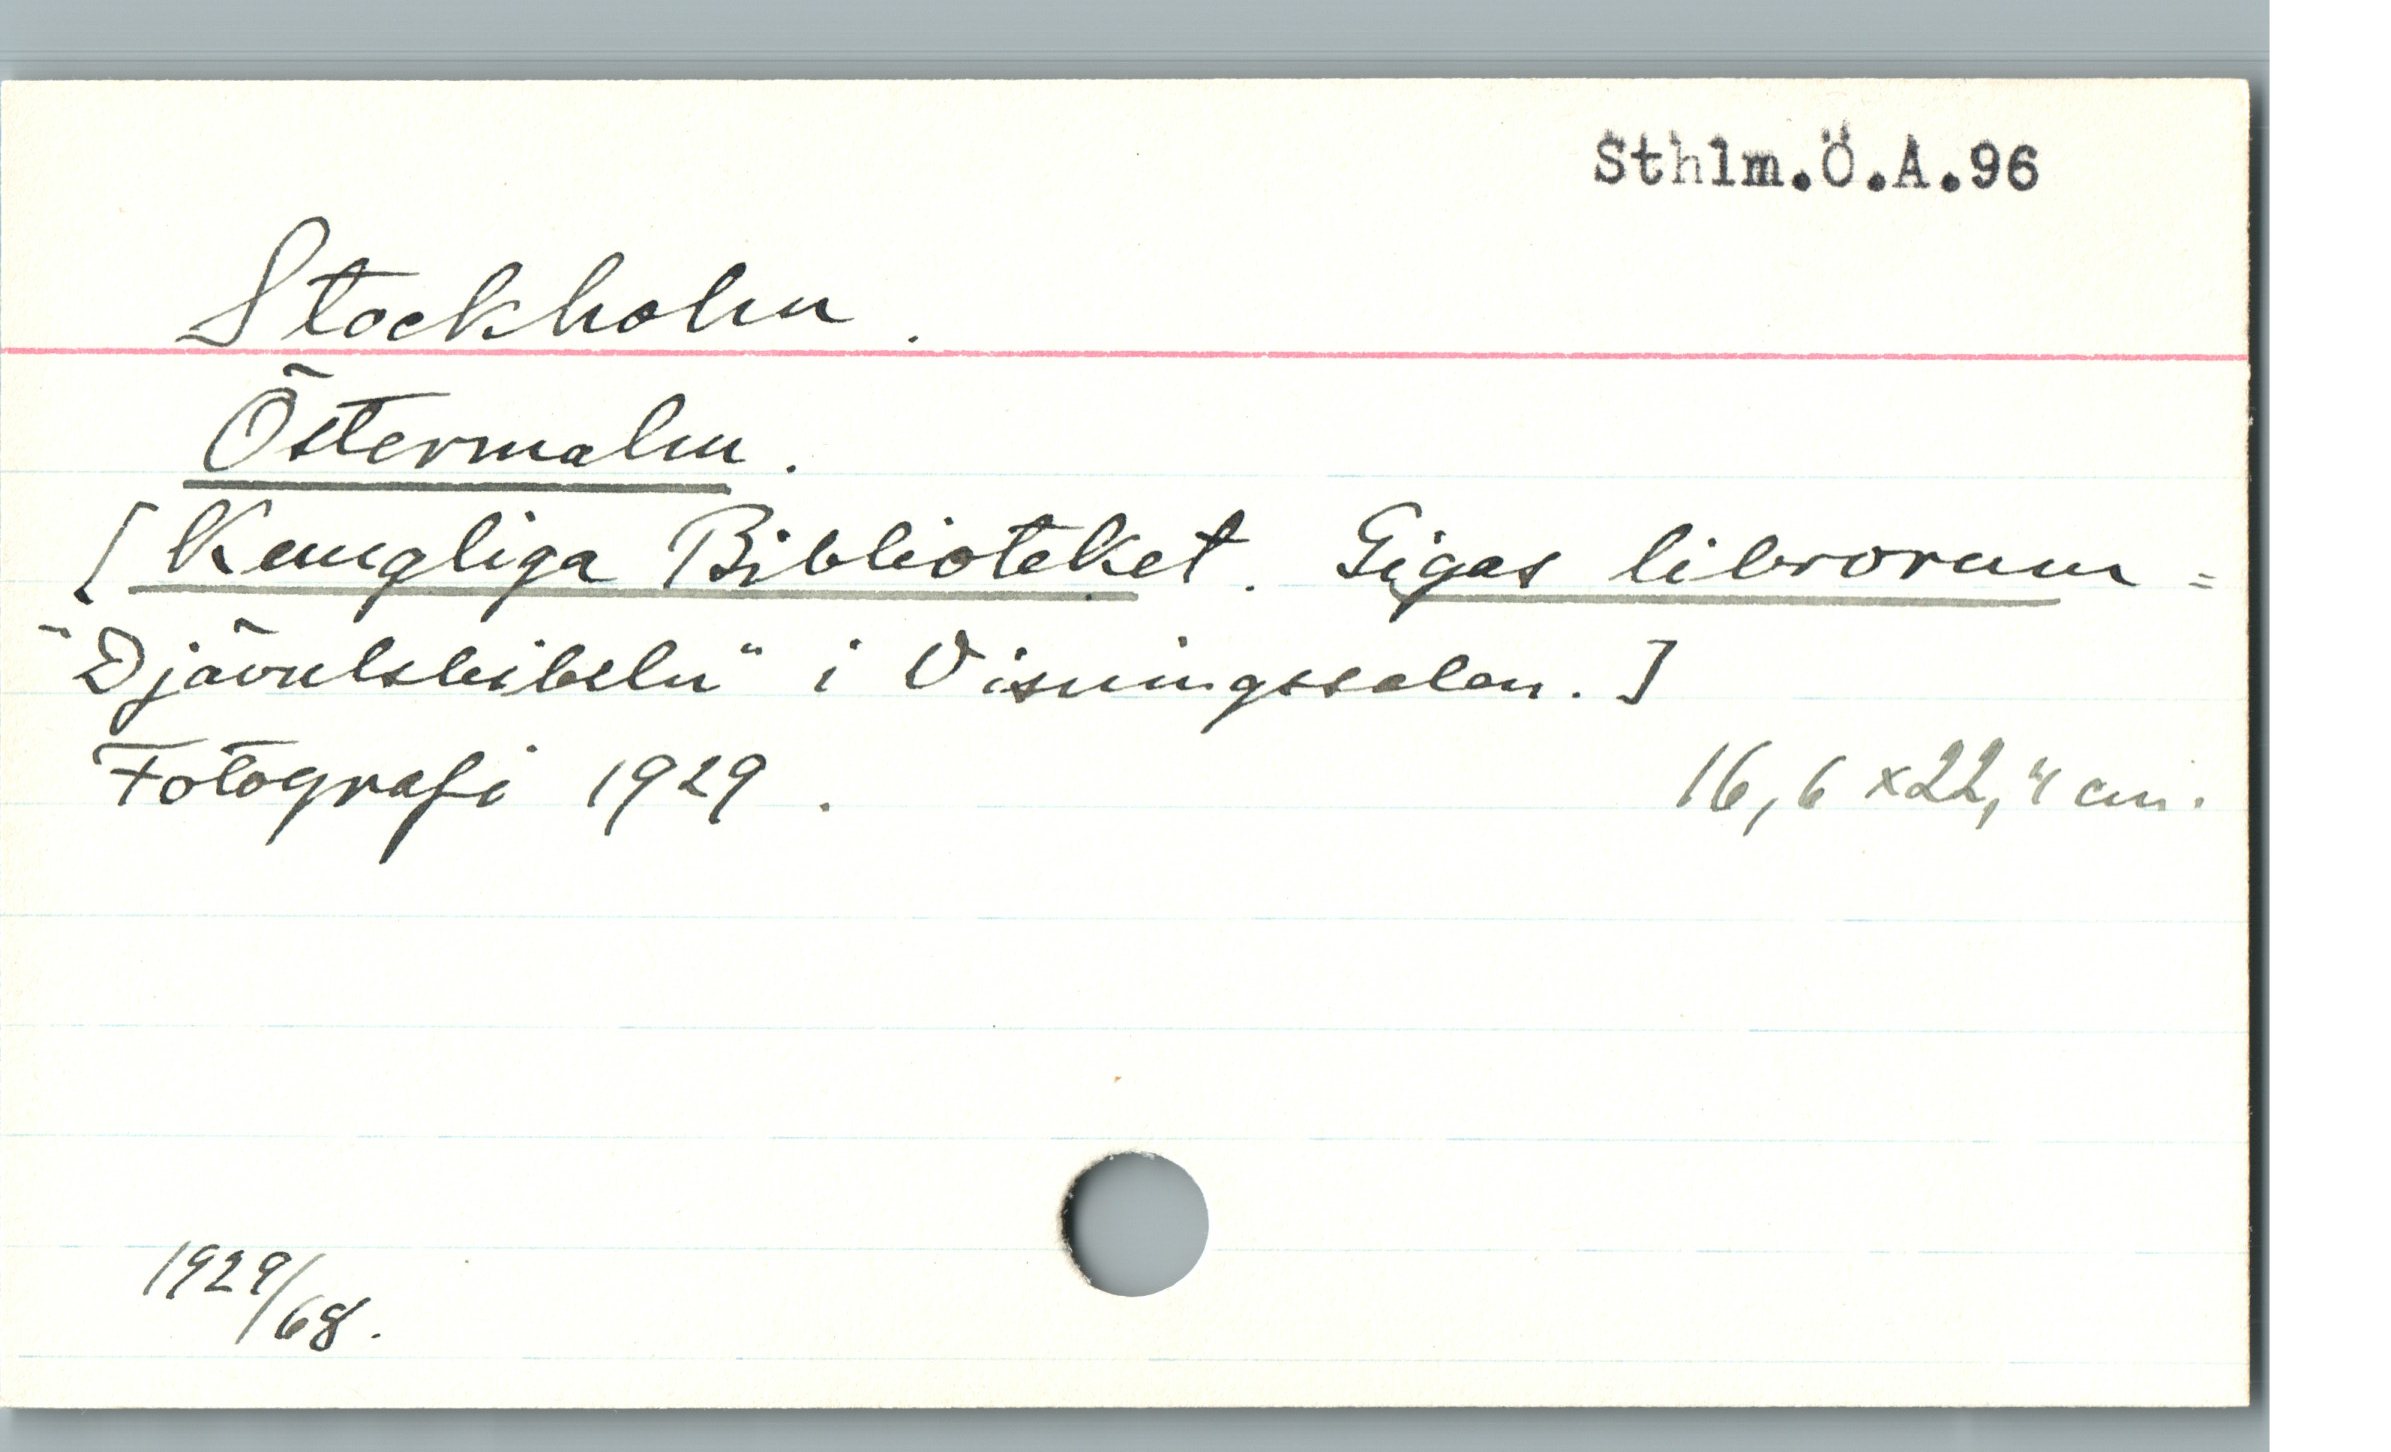 Sthlm.Ö.A.96
Stockholm.
Östermalm.
[Kungliga Biblioteket. Gigas librorum =
"Djävulsbibeln" i Visningssalen.]
Fotografi 1929. 16,6 x 22,4 cm.
1929/68.